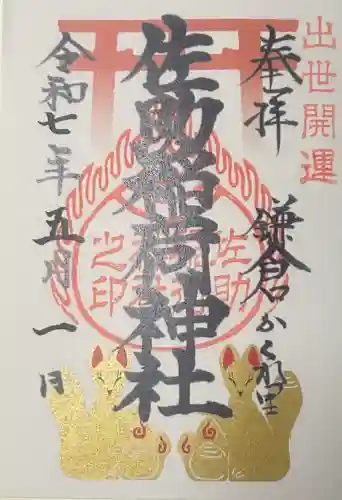 出世開運
奉拝
鎌倉かくれ里
佐助稲荷神社
令和七年五月一日
佐助稲荷神社之印